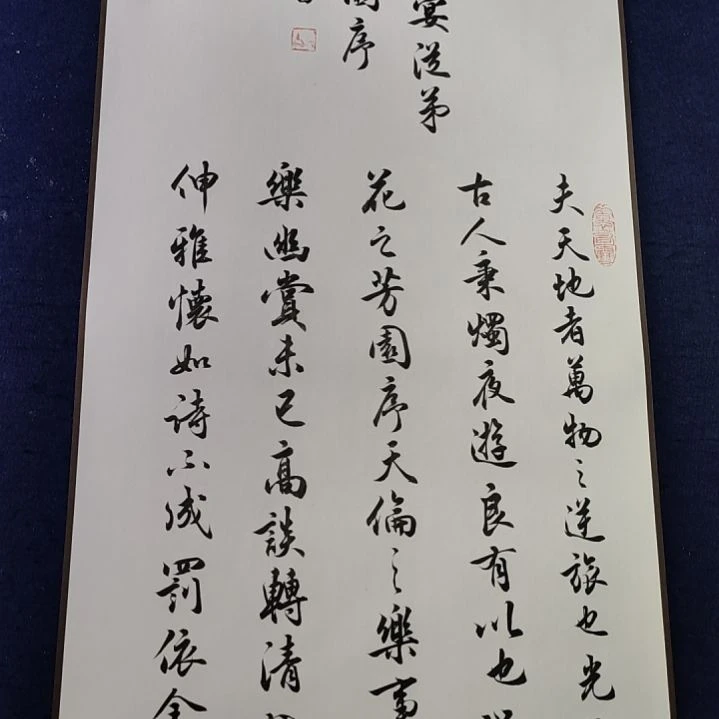 夫天地者萬物之逆旅也光
古人秉燭夜遊良有以也
花之芳園序天倫之樂事
樂幽賞未已高談轉清
伸雅懷如詩不成罰依金
宴從弟
園序